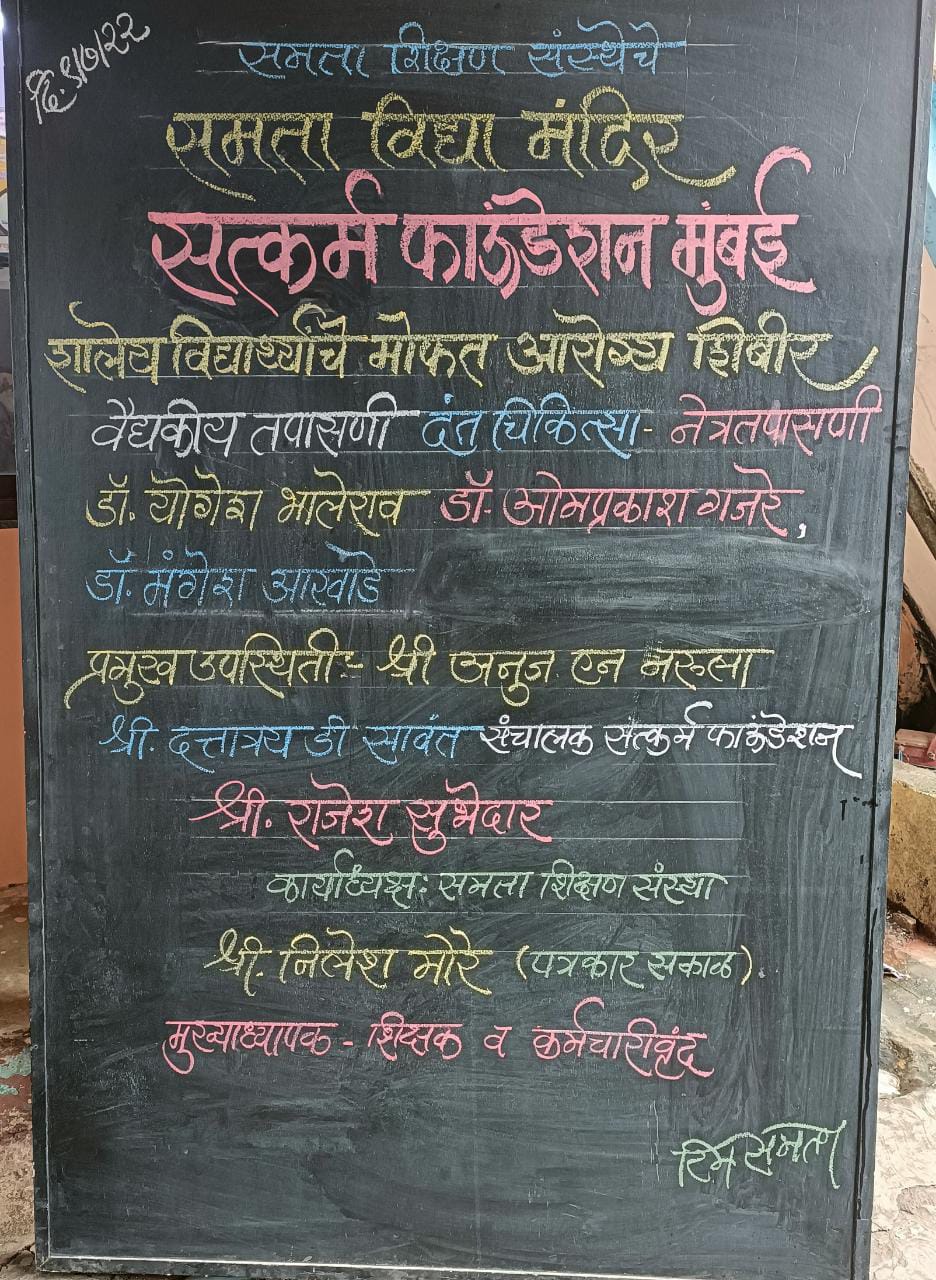 दि. ९/७/२२
समता शिक्षण संस्थेचे
समता विद्या मंदिर
सत्कर्म फाऊंडेशन मुंबई
शालेय विद्यार्थ्यांचे मोफत आरोग्य शिबीर
वैद्यकीय तपासणी दंत चिकित्सा - नेत्रतपासणी
डॉ. योगेश भालेराव डॉ. ओमप्रकाश गजरे,
डॉ. मंगेश आखाडे
प्रमुख उपस्थिती:- श्री अनुज एन नरुला
श्री. दत्तात्रय डी सावंत संचालक सत्कर्म फाऊंडेशन
श्री. राजेश सुभेदार
कार्याध्यक्ष: समता शिक्षण संस्था
श्री. निलेश मोरे (पत्रकार सकाळ)
मुख्याध्यापक - शिक्षक व कर्मचारीवृंद
समता